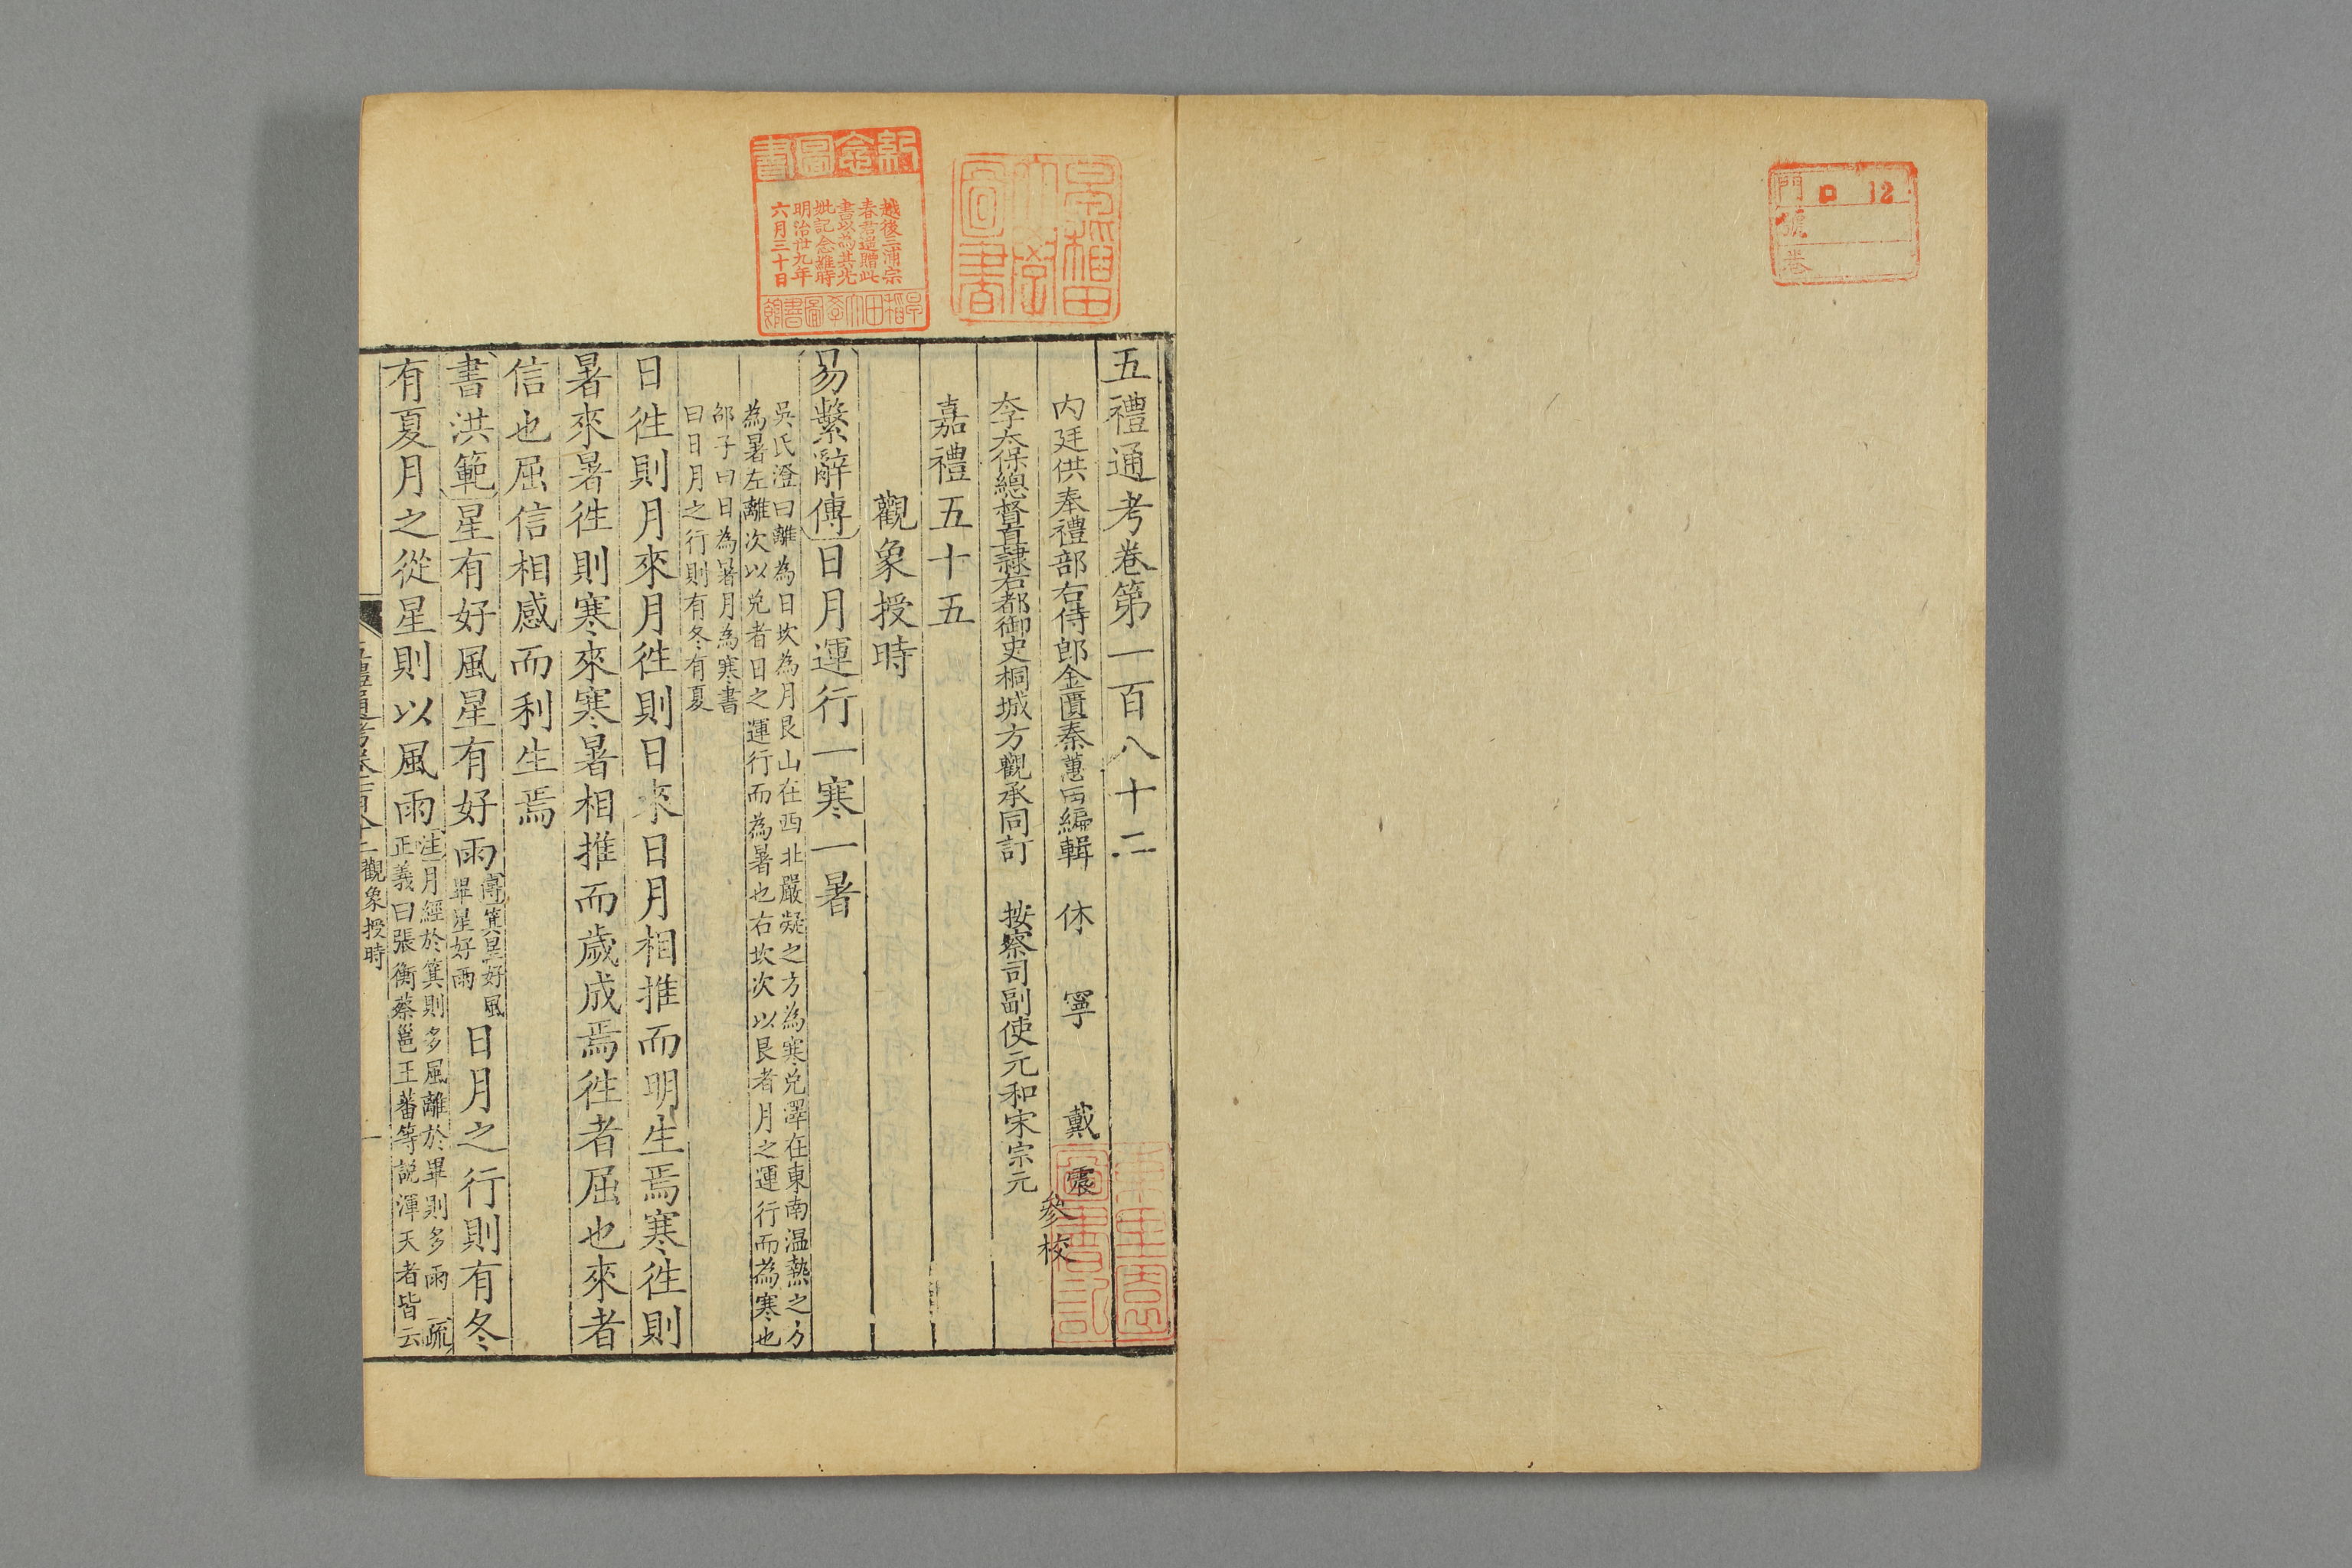 門 ロ 12
號
卷
早稲田
大學
圖書
紀念圖書
越後三浦宗
春君遥贈此
書以為其先
妣記念維時
明治卅九年
六月三十日
早稲田大學圖書館
五禮通考卷第一百八十二
内廷供奉禮部右侍郎金匱秦蕙田編輯 休寧戴震
李太保總督直隸右都御史桐城方觀承同訂 按察司副使元和宋宗元
參校
嘉禮五十五
觀象授時
易繫辭傳日月運行一寒一暑
吳氏澄曰離為日坎為月艮山在西北嚴凝之方為寒兌澤在東南温熱之方
為暑左離次以兌者日之運行而為暑也右坎次以艮者月之運行而為寒也
邵子曰日為暑月為寒書
曰日月之行則有冬有夏
日徃則月來月徃則日來日月相推而明生焉寒徃則
暑來暑徃則寒來寒暑相推而歲成焉徃者屈也來者
信也屈信相感而利生焉
書洪範星有好風星有好雨
傳箕星好風
畢星好雨
日月之行則有冬
有夏月之從星則以風雨
注月經於箕則多風離於畢則多雨 疏
正義曰張衡蔡邕王蕃等説渾天者皆云
五禮通考卷一百八十二 觀象授時 一